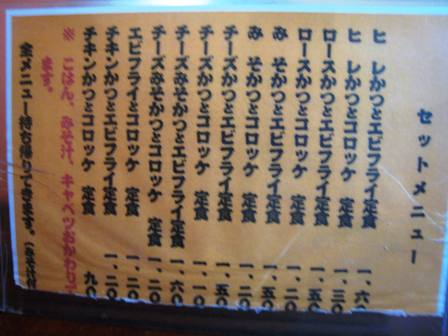 セットメニュー
ヒレかつとエビフライ定食 一、六
ヒレかつとコロッケ 定食 一、三〇
ロースかつとエビフライ定食 一、五〇
ロースかつとコロッケ 定食 一、二〇
みそかつとエビフライ定食 一、五〇
みそかつとコロッケ 定食 一、二〇
チーズかつとエビフライ定食 一、五〇
チーズかつとコロッケ 定食 一、一〇
チーズみそかつとエビフライ定食 一、六〇
チーズみそかつとコロッケ 定食 一、二〇
エビフライとコロッケ 定食 一、二〇
チキンかつとエビフライ定食 一、二〇
チキンかつとコロッケ 定食 九〇
※ ごはん、みそ汁、キャベツおかわりで
きます。
全メニュー持ち帰りできます。(みそ汁付